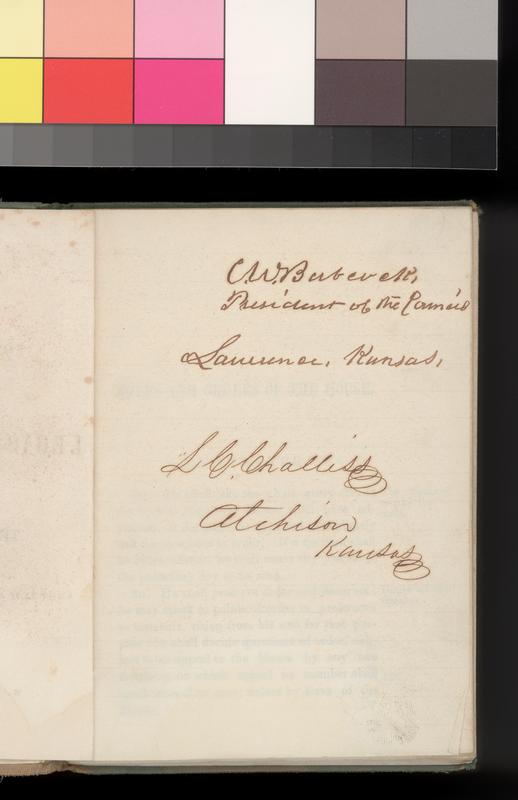 C. W. Babcock,
President of the Council
Lawrence, Kansas,
L. C. Challiss
Atchison
Kansas